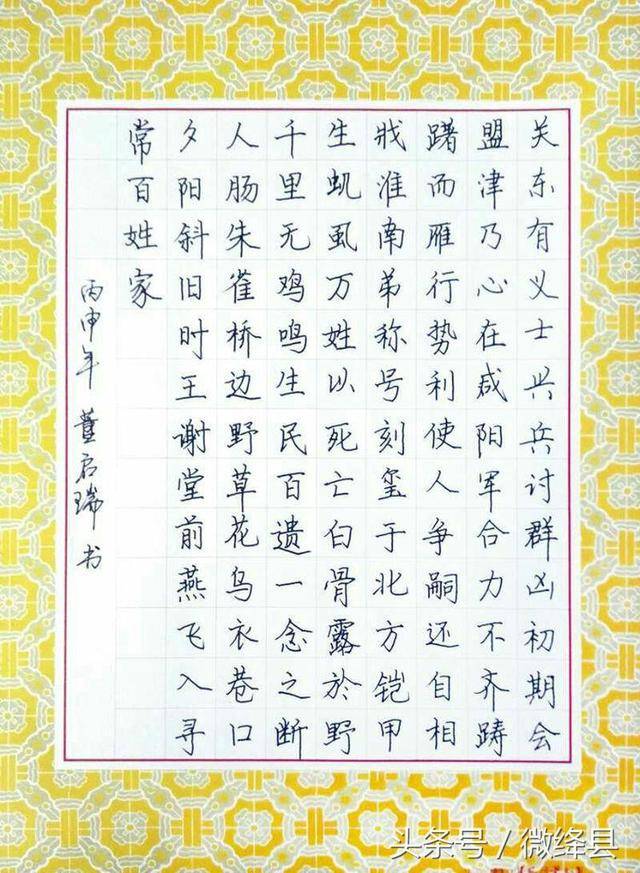 关东有义士兴兵讨群凶初期会
盟津乃心在咸阳军合力不齐踌
躇而雁行势利使人争嗣还自相
戕淮南弟称号刻玺于北方铠甲
生虮虱万姓以死亡白骨露於野
千里无鸡鸣生民百遗一念之断
人肠朱雀桥边野草花乌衣巷口
夕阳斜旧时王谢堂前燕飞入寻
常百姓家
丙申年 董启瑞 书
头条号 / 微绛县